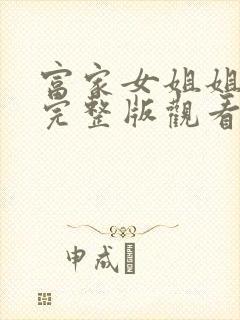 富家女姐姐
完整版觀看
申成